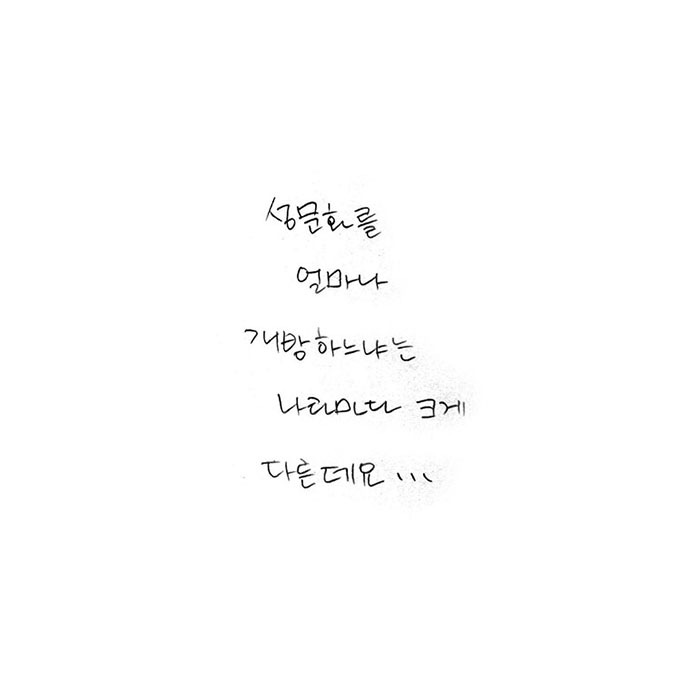 성문화를
얼마나
개방하느냐는
나라마다 크게
다른데요...